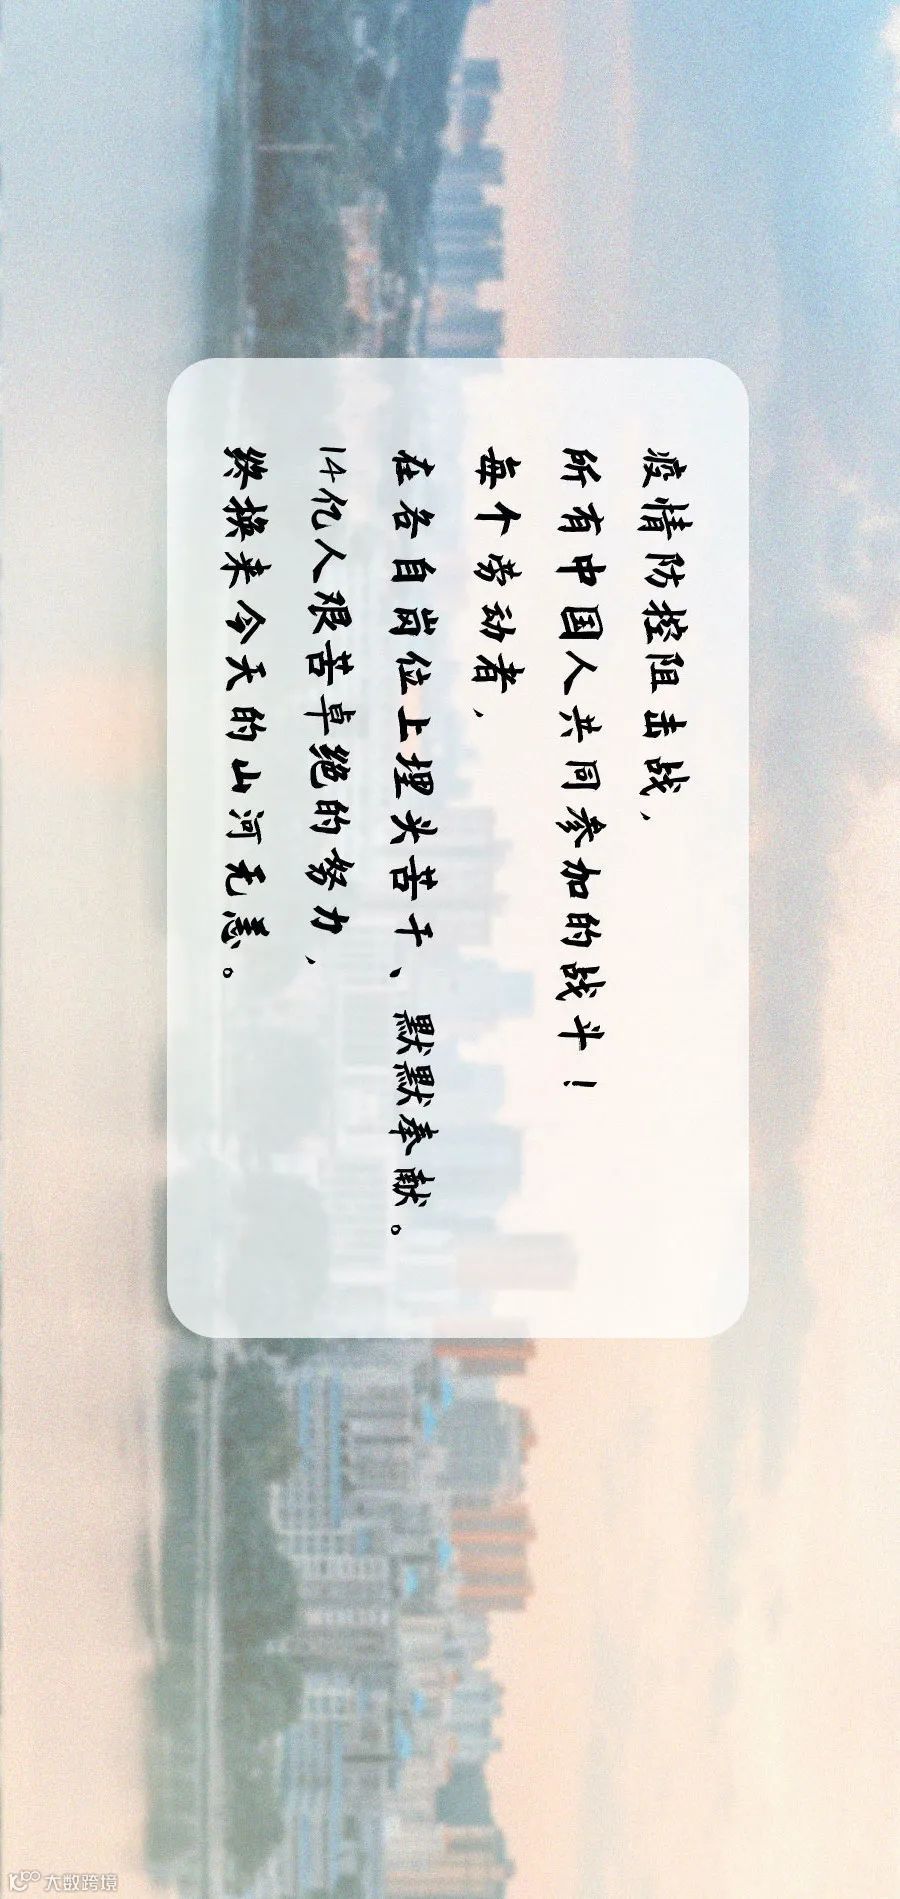 疫情防控阻击战，
所有中国人共同参加的战斗！
每个劳动者，
在各自岗位上埋头苦干、默默奉献。
14亿人艰苦卓绝的努力，
终换来今天的山河无恙。
大数跨境